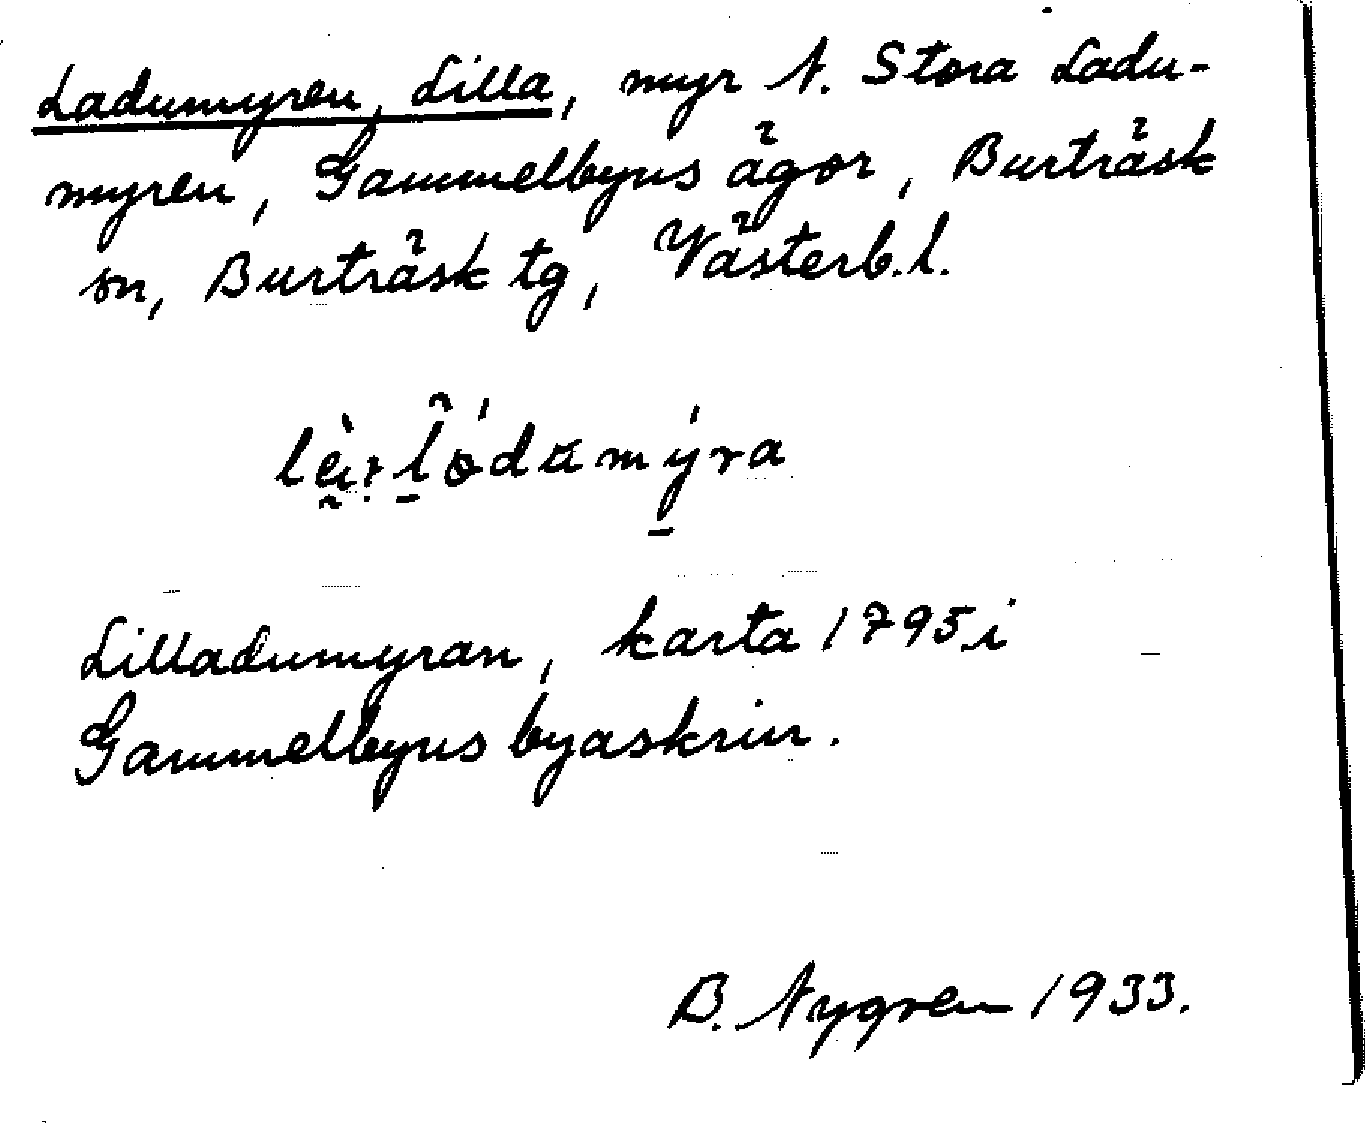 Ladumyren, Lilla, myr N. Stora Ladu-
myren, Gammelbyns ägor, Burträsk
sn, Burträsk tg, Västerb. l.
Lilladumyran, karta 1795 i
Gammelbyns byaskrin.
B. Nygren 1933.